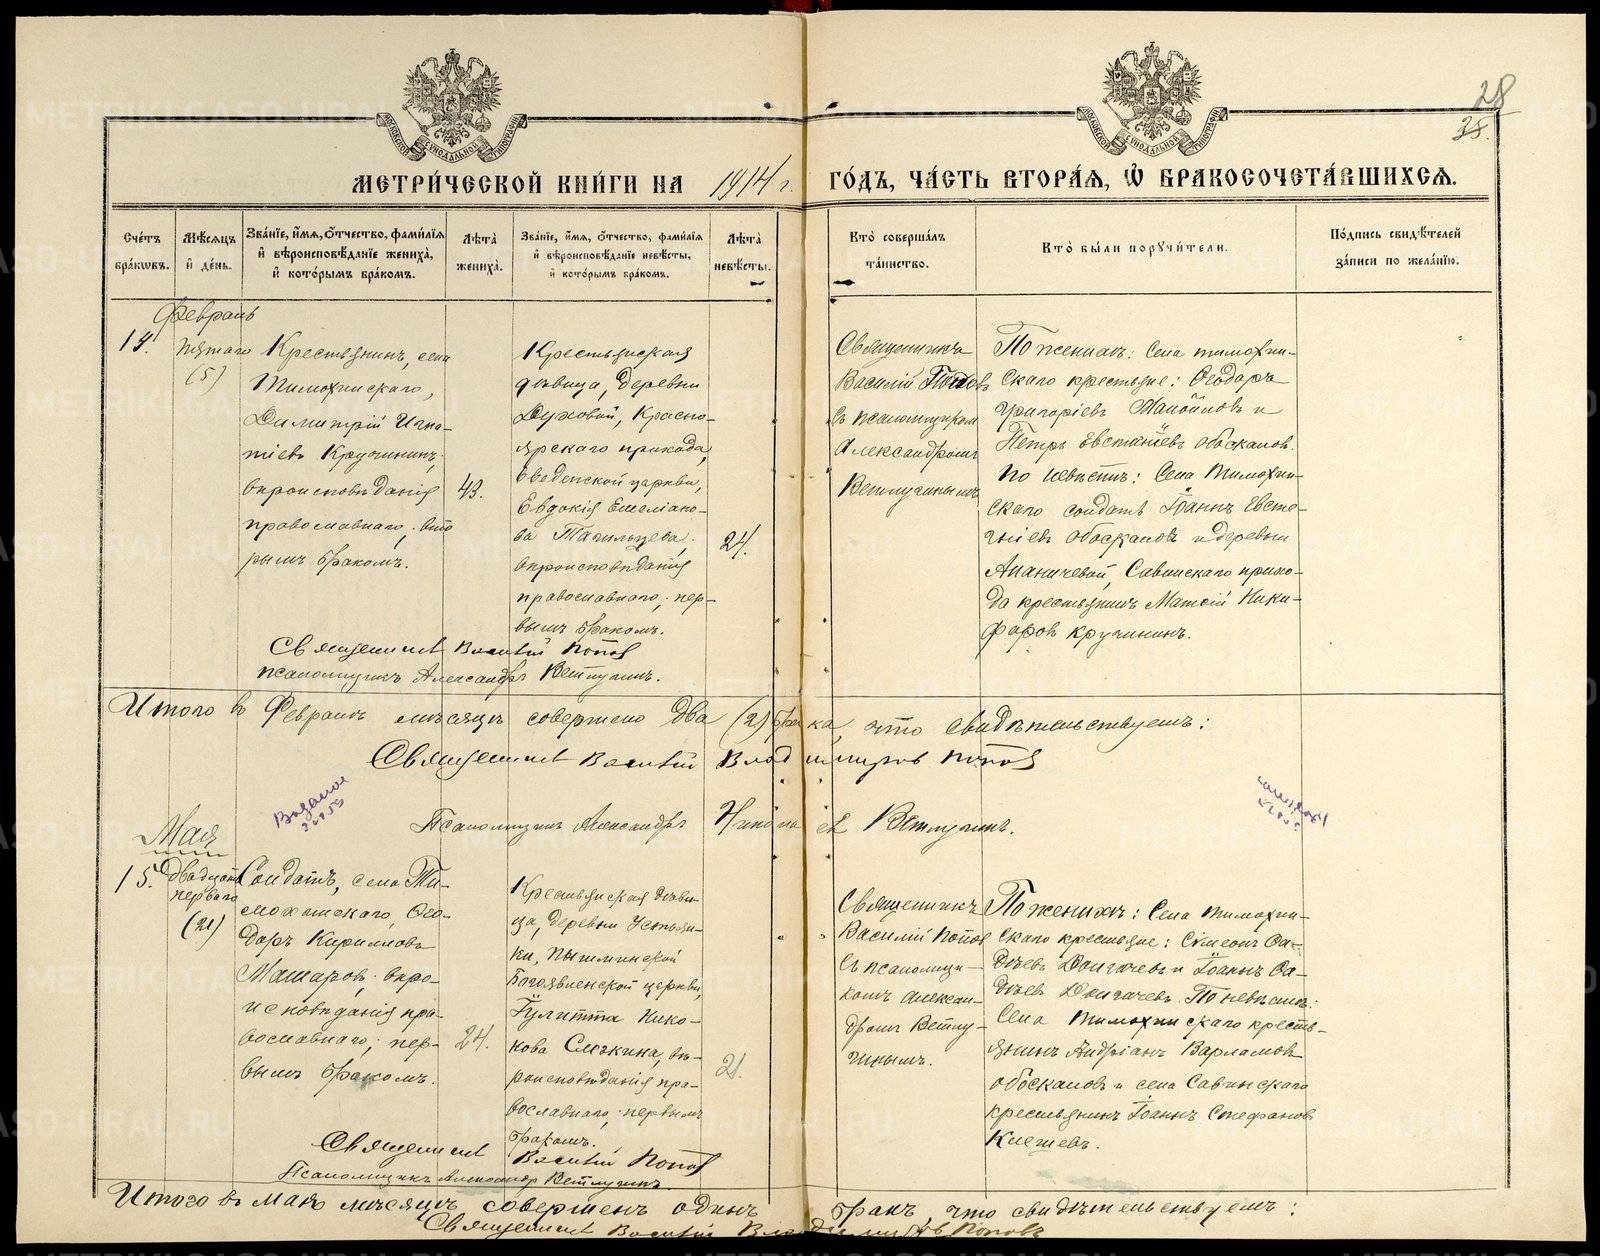 28
25.
МОСКОВСКОЙ СУНОДАЛЬНОЙ ТИПОГРАФІИ
МОСКОВСКОЙ СУНОДАЛЬНОЙ ТИПОГРАФІИ
МЕТРИ́ЧЕСКОЙ КНИ́ГИ НА 1914 г. ГО́ДЪ, ЧА́СТЬ ВТОРА́Я, Ѡ БРАКОСОЧЕТА́ВШИХСЯ.
Сче́тъ бра́кωвъ.
Мѣ́сяцъ и҆ де́нь.
Зва́нїе, и҆́мя, ѻ҆́тчество, фами́лїя и҆ вѣроисповѣ́данїе жениха̀, и҆ кото́рымъ бра́комъ.
Лѣ́та жениха̀.
Зва́нїе, и҆́мя, ѻ҆́тчество, фами́лїя и҆ вѣроисповѣ́данїе невѣ́сты, и҆ кото́рымъ бра́комъ.
Лѣ́та невѣ́сты.
Кто̀ соверша́лъ та́инство.
Кто̀ бы́ли поручи́тели.
По́дпись свидѣ́телей за́писи по жела́нїю.
Февраль
14.
пятаго
(5)
Крестьянинъ, села
Тимохинскаго,
Димитрій Игна-
тіевъ Кручининъ,
вѣроисповѣданія
православнаго; вто
рымъ бракомъ.
43.
Крестьянская
дѣвица, деревни
Духовой, Красно-
ярскаго прихода,
Введенской церкви,
Евдокія Емеліано-
ва Тагильцева,
вѣроисповѣданія
православнаго; пер-
вымъ бракомъ.
24.
Священникъ
Василій Поповъ
съ псаломщикомъ
Александромъ
Ветлугинымъ
По женихѣ: Села Тимохин-
скаго крестьяне: Ѳеодоръ
Григоріевъ Мануйловъ и
Петръ Евстигнѣевъ Обоскаловъ.
По невѣстѣ: Села Тимохин-
скаго солдатъ Іоаннъ Евсте-
гніевъ Обоскаловъ и деревни
Ананичевой, Савинскаго прихо-
да крестьянинъ Матѳій Ники-
форовъ Кручининъ.
Священникъ Василій Попов
псаломщикъ Александръ Ветлугинъ.
Итого въ Февралѣ мѣсяцѣ совершено два (2) брака, что свидѣтельствуемъ:
Священникъ Василій Владиміровъ Попов
Псаломщикъ Александръ Николаевъ Ветлугинъ.
Мая
15.
двадцать
перваго
(21)
Солдатъ, села Ти-
мохинскаго, Ѳео-
доръ Кирилловъ
Машаровъ; вѣро-
исповѣданія пра-
вославнаго; пер-
вымъ бракомъ.
24.
Крестьянская дѣви-
ца, деревни Устьян-
ки, Пышминской
Богоявленской церкви,
Іулитта Нико-
нова Сычкина, вѣ-
роисповѣданія пра-
вославнаго; первымъ
бракомъ.
21.
Священникъ
Василій Попов
съ псаломщи-
комъ Алексан-
дромъ Ветлу-
гинымъ.
По женихѣ: Села Тимохин-
скаго крестьяне: Сѵмеонъ Ѳа-
дѣевъ Долгачевъ и Іоаннъ Ѳа-
дѣевъ Долгачевъ. По невѣстѣ:
Села Тимохинскаго кресть-
янинъ Андріанъ Варламовъ
Обоскаловъ и села Савинскаго
крестьянинъ Іоаннъ Стефановъ
Священникъ Василій Попов
Псаломщикъ Александр Ветлугинъ.
Итого въ Маѣ мѣсяцѣ совершенъ одинъ бракъ, что свидѣтельствуемъ:
Священникъ Василій Владиміровъ Поповъ
METRIKI.GASO-URAL.RU